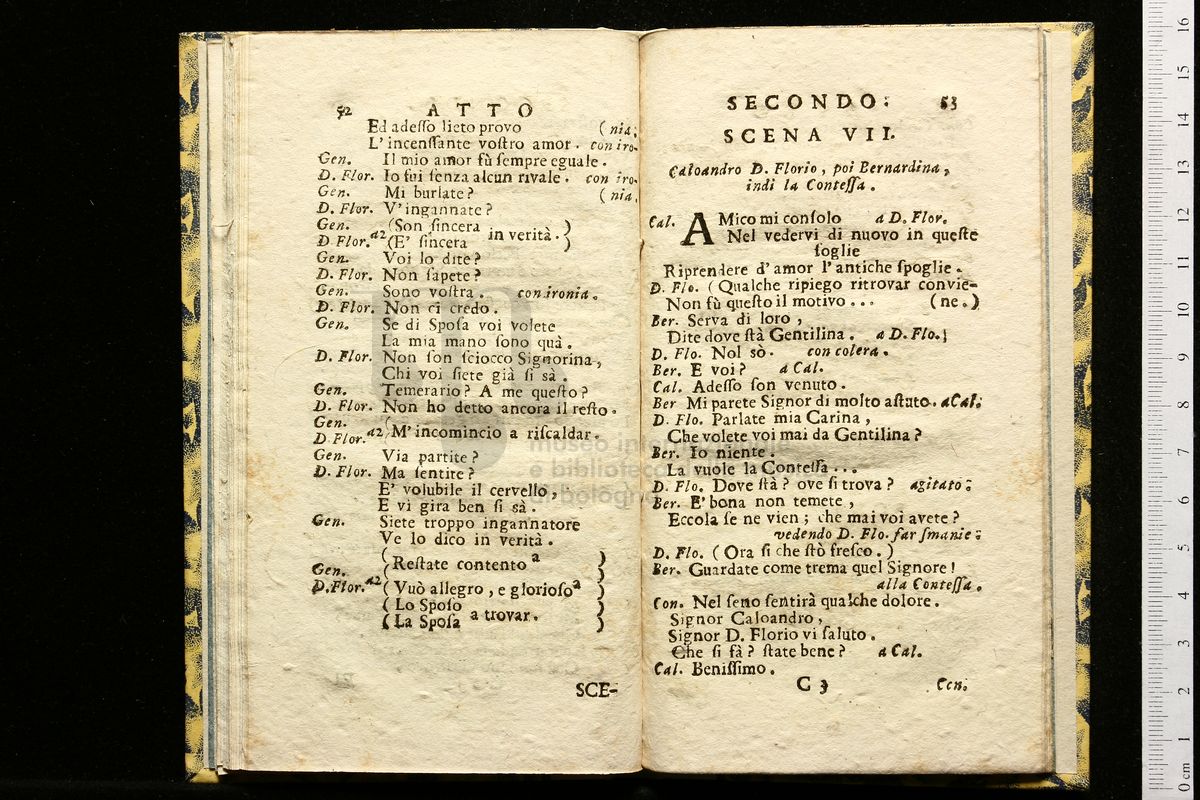 52 ATTO
Ed adeſſo lieto provo (nia;
L' incenſſante voſtro amor. con iro-
Gen. Il mio amor fù ſempre eguale.
D. Flor. Io fui ſenza alcun rivale. con iro-
Gen. Mi burlate? (nia.
D. Flor. V' ingannate?
Gen. (Son ſincera
D. Flor. a2 (E' ſincera in verità.)
Gen. Voi lo dite?
D. Flor. Non ſapete?
Gen. Sono voſtra. con ironia.
D. Flor. Non ci credo.
Gen. Se di Spoſa voi volete
La mia mano ſono quà.
D. Flor. Non ſon ſciocco Signorina,
Chi voi ſiete già ſi sà.
Gen. Temerario? A me queſto?
D. Flor. Non ho detto ancora il reſto.
Gen.
D. Flor. a2 (M' incomincio a riſcaldar.
Gen. Via partite?
D. Flor. Ma ſentite?
E' volubile il cervello,
E vi gira ben ſi sà.
Gen. Siete troppo ingannatore
Ve lo dico in verità.
Gen. (Reſtate contento a )
D. Flor. a2 (Vuò allegro, e glorioſo a )
(Lo Spoſo )
(La Spoſa a trovar. )
SCE-
SECONDO. 53
SCENA VII.
Caloandro D. Florio, poi Bernardina,
indi la Conteſſa.
Cal. AMico mi conſolo a D. Flor.
Nel vedervi di nuovo in queſte
ſoglie
Riprendere d' amor l' antiche ſpoglie.
D. Flo. (Qualche ripiego ritrovar convie-
Non fù queſto il motivo... (ne.)
Ber. Serva di loro,
Dite dove ſtà Gentilina. a D. Flo.
D. Flo. Nol sò. con colera.
Ber. E voi? a Cal.
Cal. Adeſſo ſon venuto.
Ber Mi parete Signor di molto aſtuto. a Cal.
D. Flo. Parlate mia Carina,
Che volete voi mai da Gentilina?
Ber. Io niente.
La vuole la Conteſſa...
D. Flo. Dove ſtà? ove ſi trova? agitato:
Ber. E' bona non temete,
Eccola ſe ne vien; che mai voi avete?
vedendo D. Flo. far ſmanie:
D. Flo. (Ora ſi che ſtò freſco.)
Ber. Guardate come trema quel Signore!
alla Conteſſa.
Con. Nel ſeno ſentirà qualche dolore.
Signor Caloandro,
Signor D. Florio vi ſaluto.
Che ſi fà? ſtate bene? a Cal.
Cal. Beniſſimo.
C 3 Con.
museo internazionale
e biblioteca
di bologna
0 cm 1 2 3 4 5 6 7 8 9 10 11 12 13 14 15 16